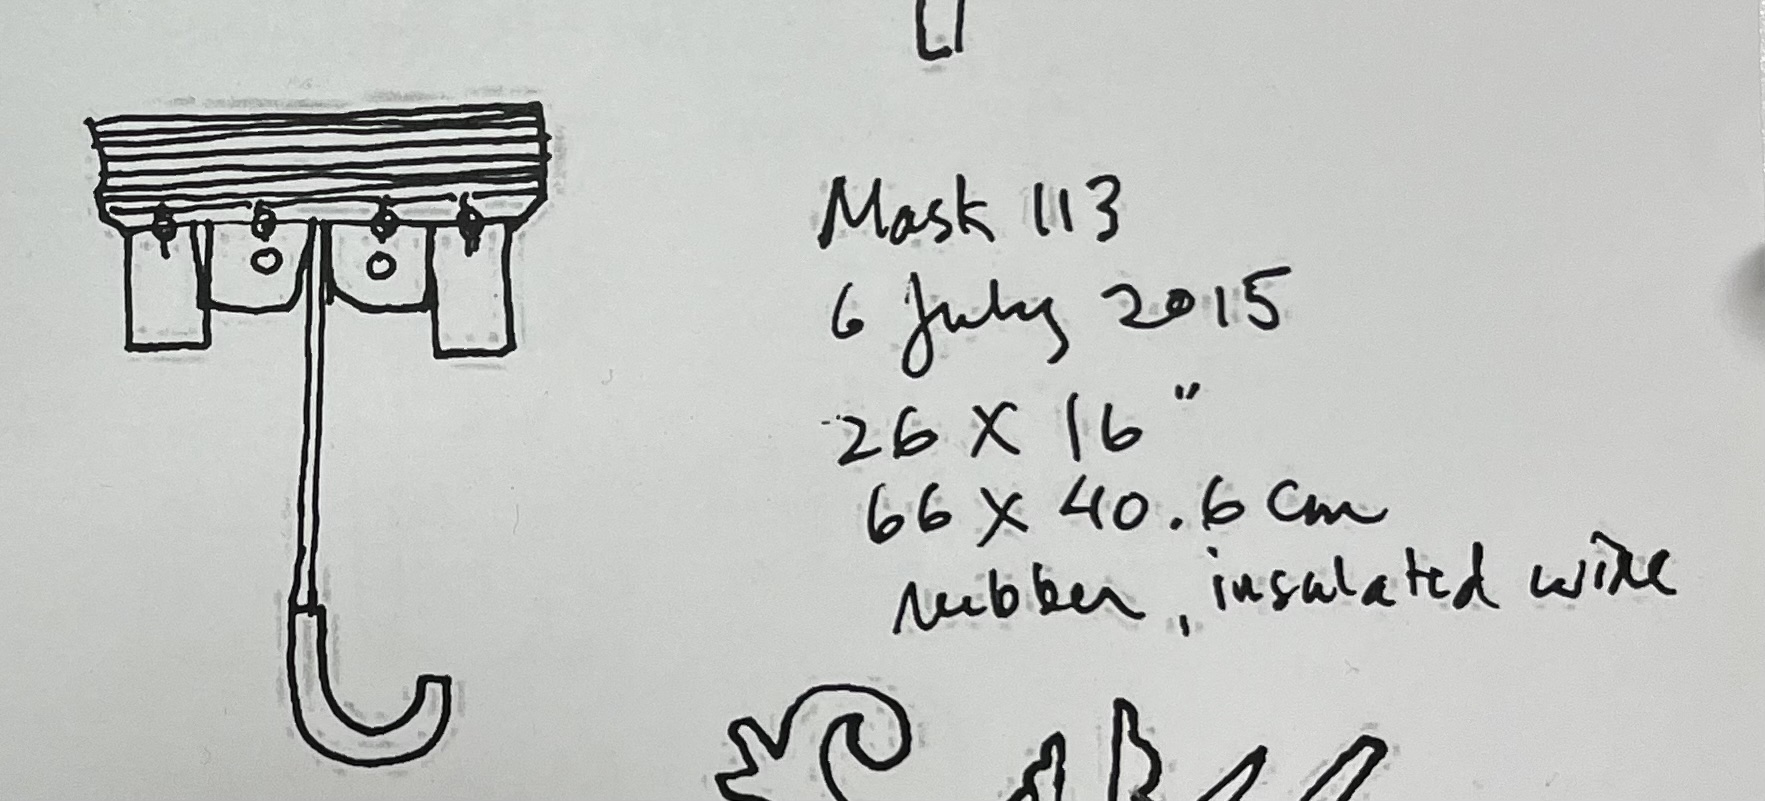 Mask 113
6 July 2015
26 X 16"
66 X 40.6 cm
rubber, insulated wire